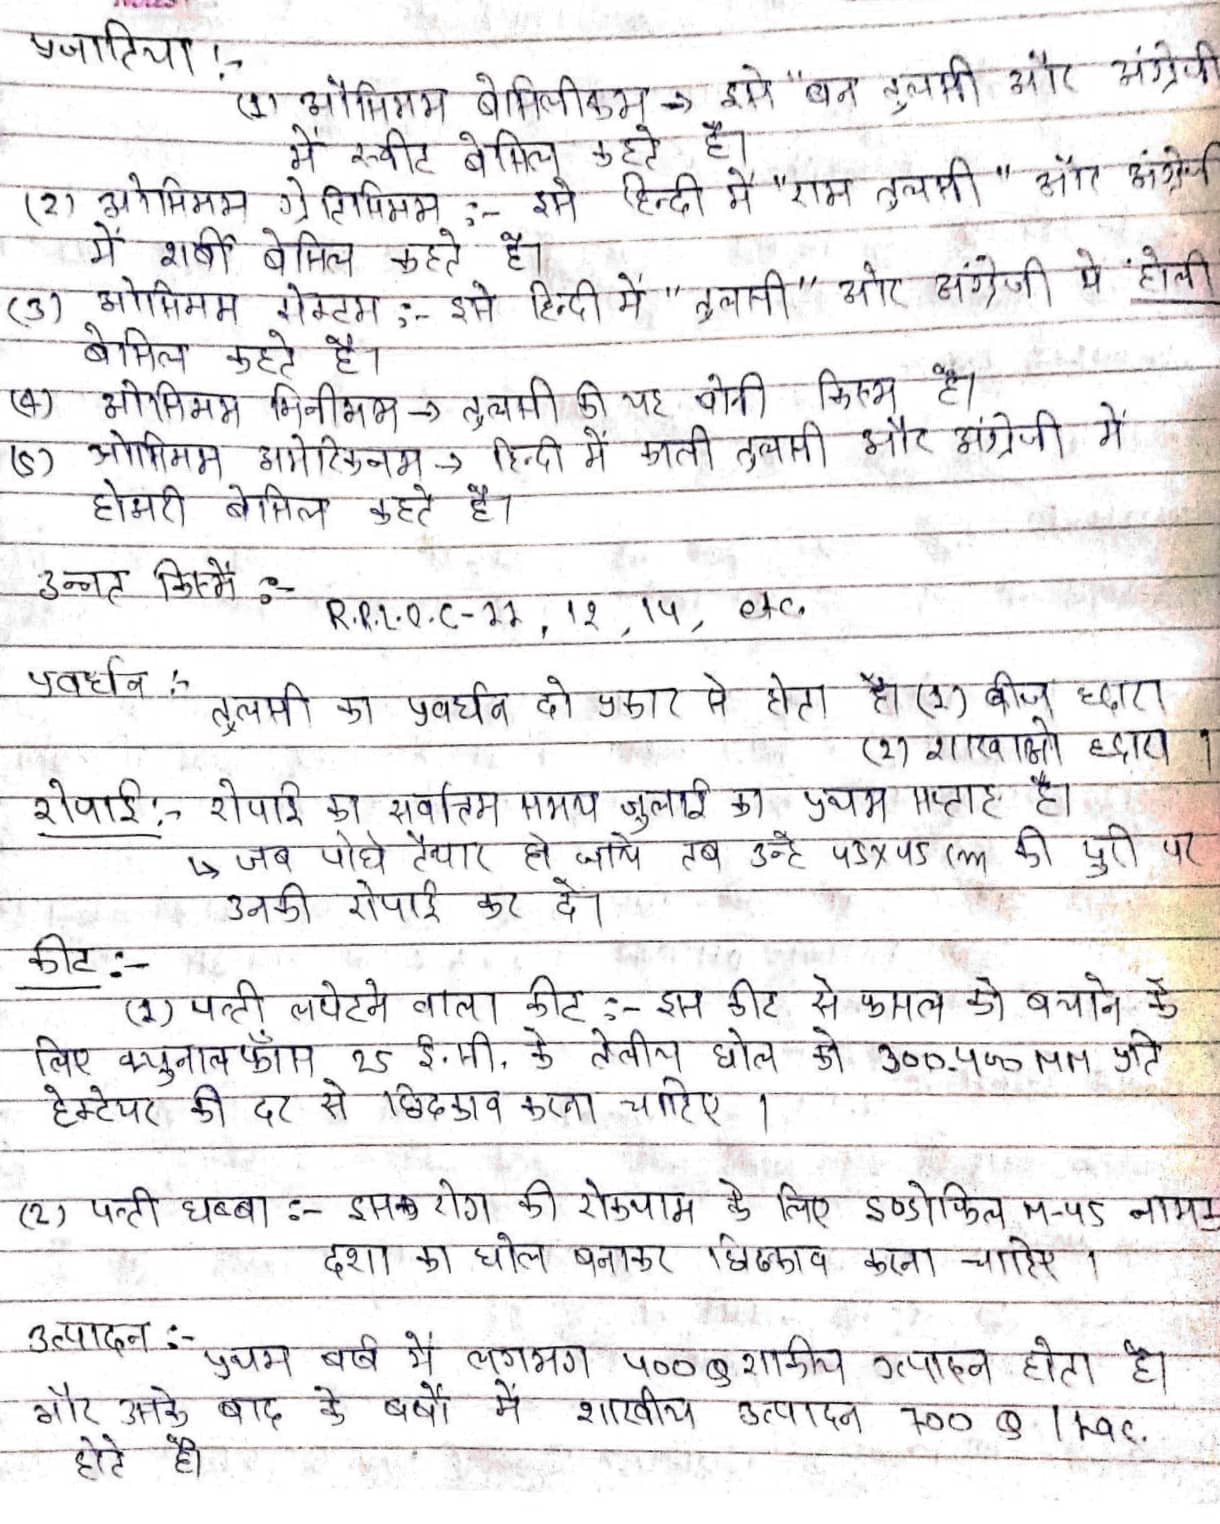 प्रजातिया :-
(1) ओसिमम बेसिलीकम → इसे "बन तुलसी और अंग्रेजी
में स्वीट बेसिल कहते है।
(2) ओसिमम ग्रेटिसिमम :- इसे हिन्दी में "राम तुलसी" और अंग्रेजी
में शर्बी बेसिल कहते है।
(3) ओसिमम सेक्टम :- इसे हिन्दी में "तुलसी" और अंग्रेजी मे होली
बेसिल कहते है।
(4) ओसिमम मिनीमम → तुलसी की यह बोनी किस्म है।
(5) ओसिमम अमेरिकनम → हिन्दी में काली तुलसी और अंग्रेजी में
होमरी बेसिल कहते है।
उन्नत किस्में :-
R.R.L.O.C-11, 12, 14, etc.
प्रवर्धन :-
तुलसी का प्रवर्धन दो प्रकार से होता है। (1) बीज द्धारा
(2) शाखाओ द्धारा ।
रोपाई :- रोपाई का सर्वोत्तम समय जुलाई का प्रथम सप्ताह है।
↳ जब पोधे तैयार हो जाये तब उन्हे 45x45 cm की दुरी पर
उनकी रोपाई कर दे।
कीट :-
(1) पत्ती लपेटने वाला कीट :- इस कीट से फसल को बचाने के
लिए क्युनालफॉस 25 ई.सी. के तेलीय घोल को 300-400 MM प्रति
हेक्टेयर की दर से छिदकाव करना चाहिए ।
(2) पत्ती धब्बा :- इस रोग की रोकथाम के लिए इण्डोफिल M-45 नामक
दशा का घोल बनाकर छिढकाव करना चाहिए ।
उत्पादन :-
प्रथम बर्ष में लगभग 400 Q शाकीय उत्पादन होता है।
और उसके बाद के बर्षो में शाखीय उत्पादन 700 Q / hac.
होते है।